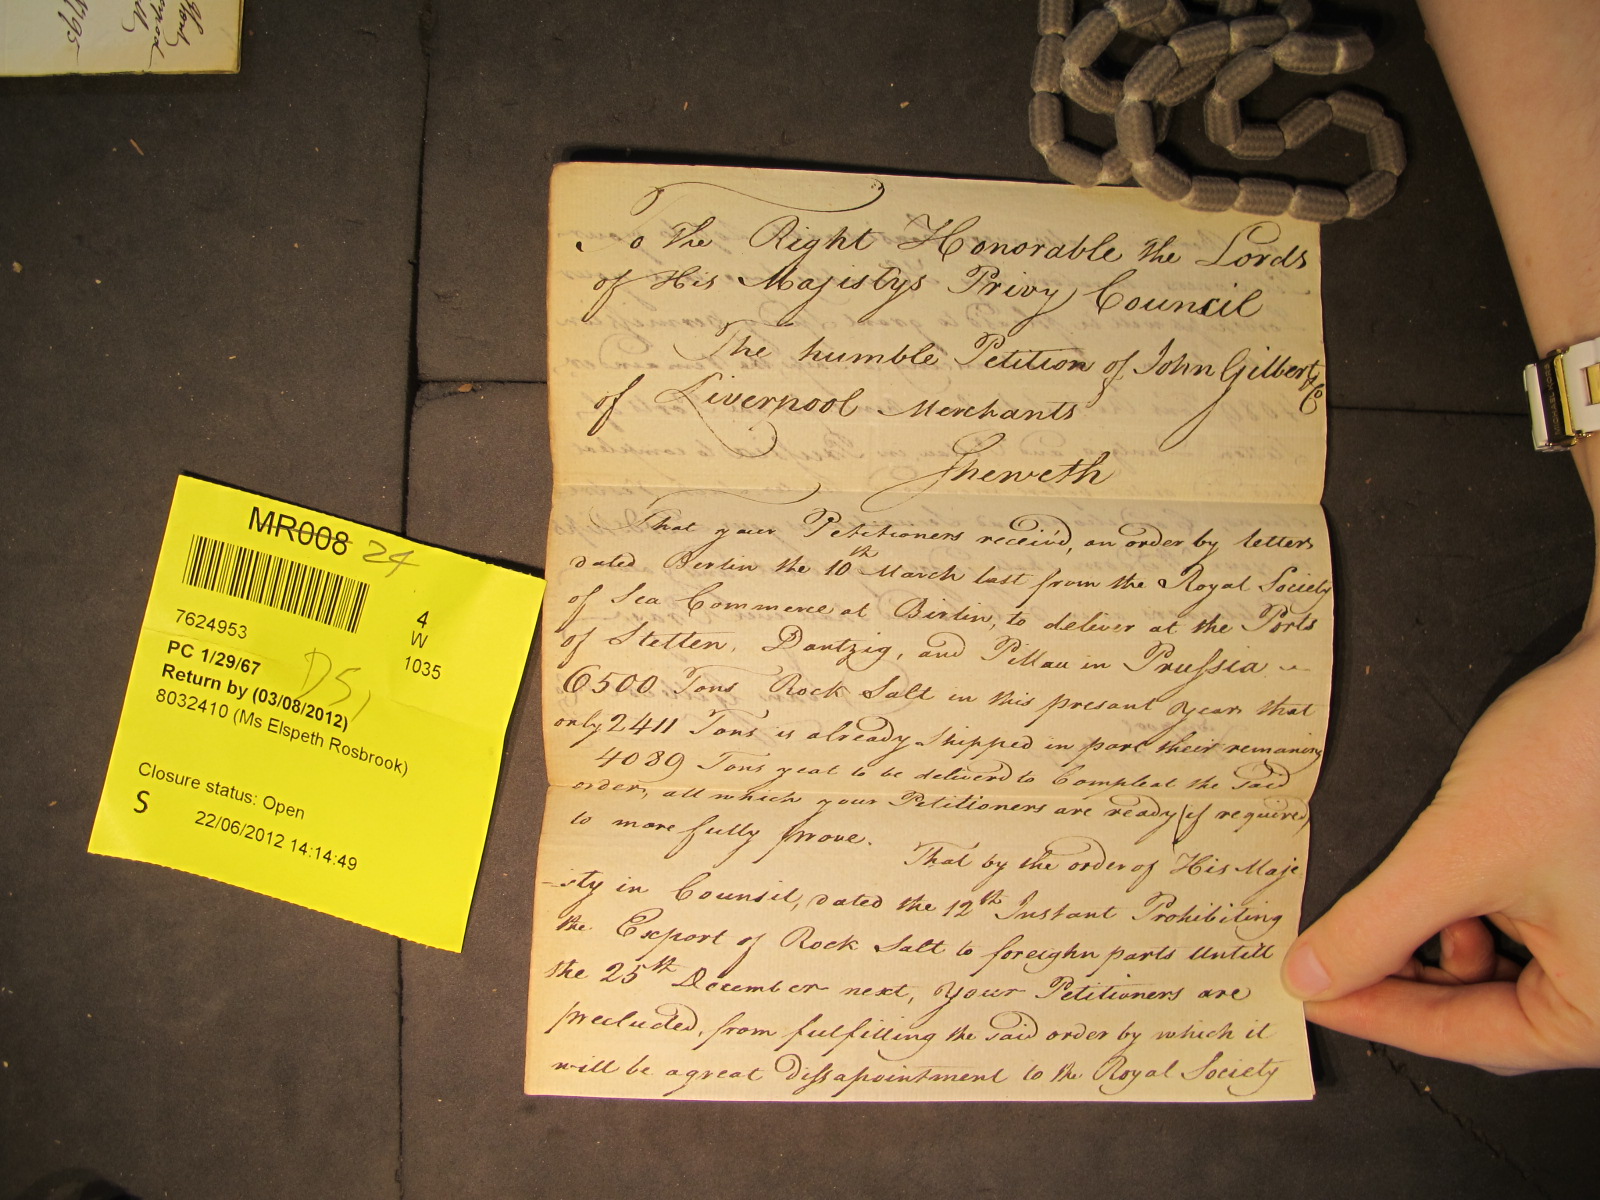 To The Right Honorable the Lords
of His Majistys Privy Council
The humble Petition of John Gilbert & Co
of Liverpool Merchants
Sheweth
That your Petitioners receiv'd, an order by letters
dated Berlin the 10th March last from the Royal Society
of Sea Commerce at Birlin, to deliver at the Ports
of Stetten, Dantzig, and Pillau in Prussia
6500 Tons Rock Salt in this presant year that
only 2411 Tons is already Shipped in part their remaining
4089 Tons yeat to be deliverd to Compleat the Said
order, all which your Petitioners are ready (if required)
to more fully prove.
That by the order of His Maje
-sty in Counsil, dated the 12th Instant Prohibiting
the Export of Rock Salt to foreighn parts Untill
the 25th December next, Your Petitioners are
precluded, from fulfilling the said order by which it
will be a great dissapointment to the Royal Society
MR008 24
7624953
4
W
1035
PC 1/29/67
DS1
Return by (03/08/2012)
8032410 (Ms Elspeth Rosbrook)
Closure status: Open
S
22/06/2012 14:14:49
1795